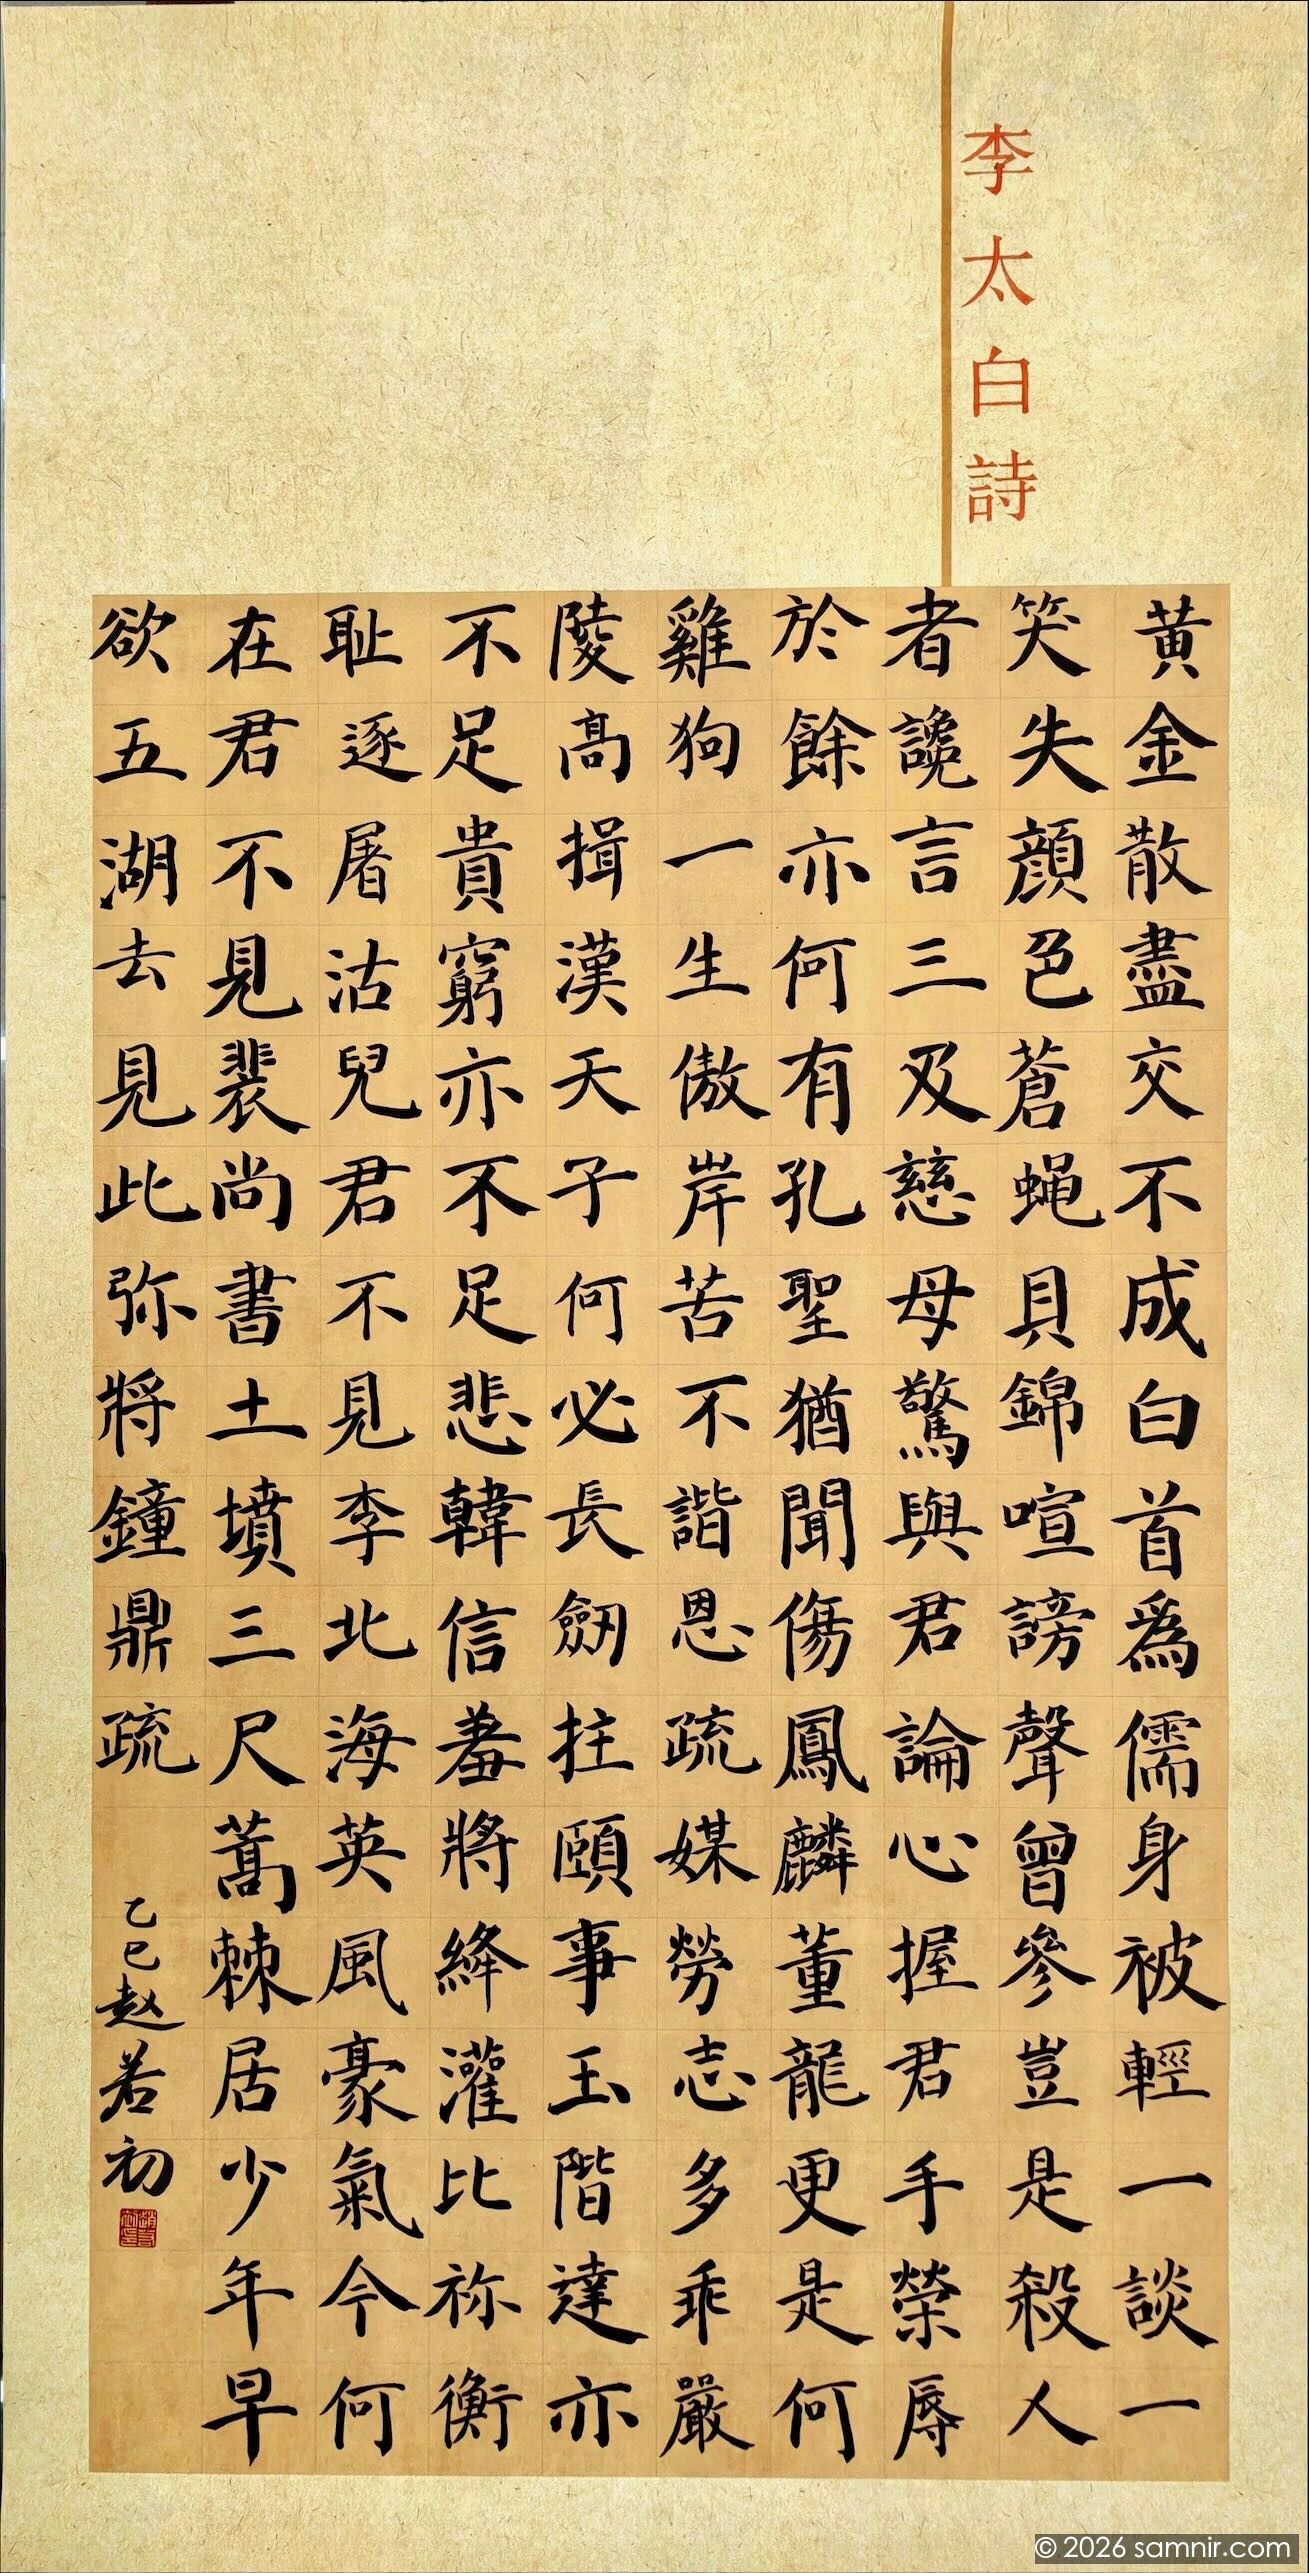 李太白詩
黄金散盡交不成白首爲儒身被輕一談一
笑失顔色蒼蝇貝錦喧謗聲曾參豈是殺人
者讒言三及慈母驚與君論心握君手榮辱
於餘亦何有孔聖猶聞傷鳳麟董龍更是何
雞狗一生傲岸苦不諧恩疏媒勞志多乖嚴
陵高揖漢天子何必長劒拄頤事玉階達亦
不足貴窮亦不足悲韓信羞將絳灌比祢衡
耻逐屠沽兒君不見李北海英風豪氣今何
在君不見裴尚書土墳三尺蒿棘居少年早
欲五湖去見此弥將鐘鼎疏
乙巳赵若初
© 2026 samnir.com